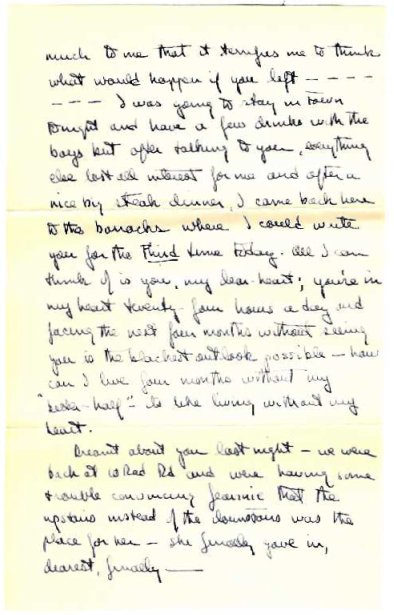 much to me that it terrifies me to think
what would happen if you left - - - -
- - - - I was going to stay in town
tonight and have a few drinks with the
boys but after talking to you, everything
else lost all interest for me and after a
nice big steak dinner, I came back here
to the barracks where I could write
you for the Third time today. All I can
think of is you, my dear heart; you're in
my heart twenty four hours a day and
facing the next four months without seeing
you is the blackest outlook possible - how
can I live four months without my
"better-half" - its like living without my
heart.
Dreamt about you last night - we were
back at Rd and were having some
trouble convincing Jeannie that the
upstairs instead of the downstairs was the
place for her - she finally gave in,
dearest, finally -